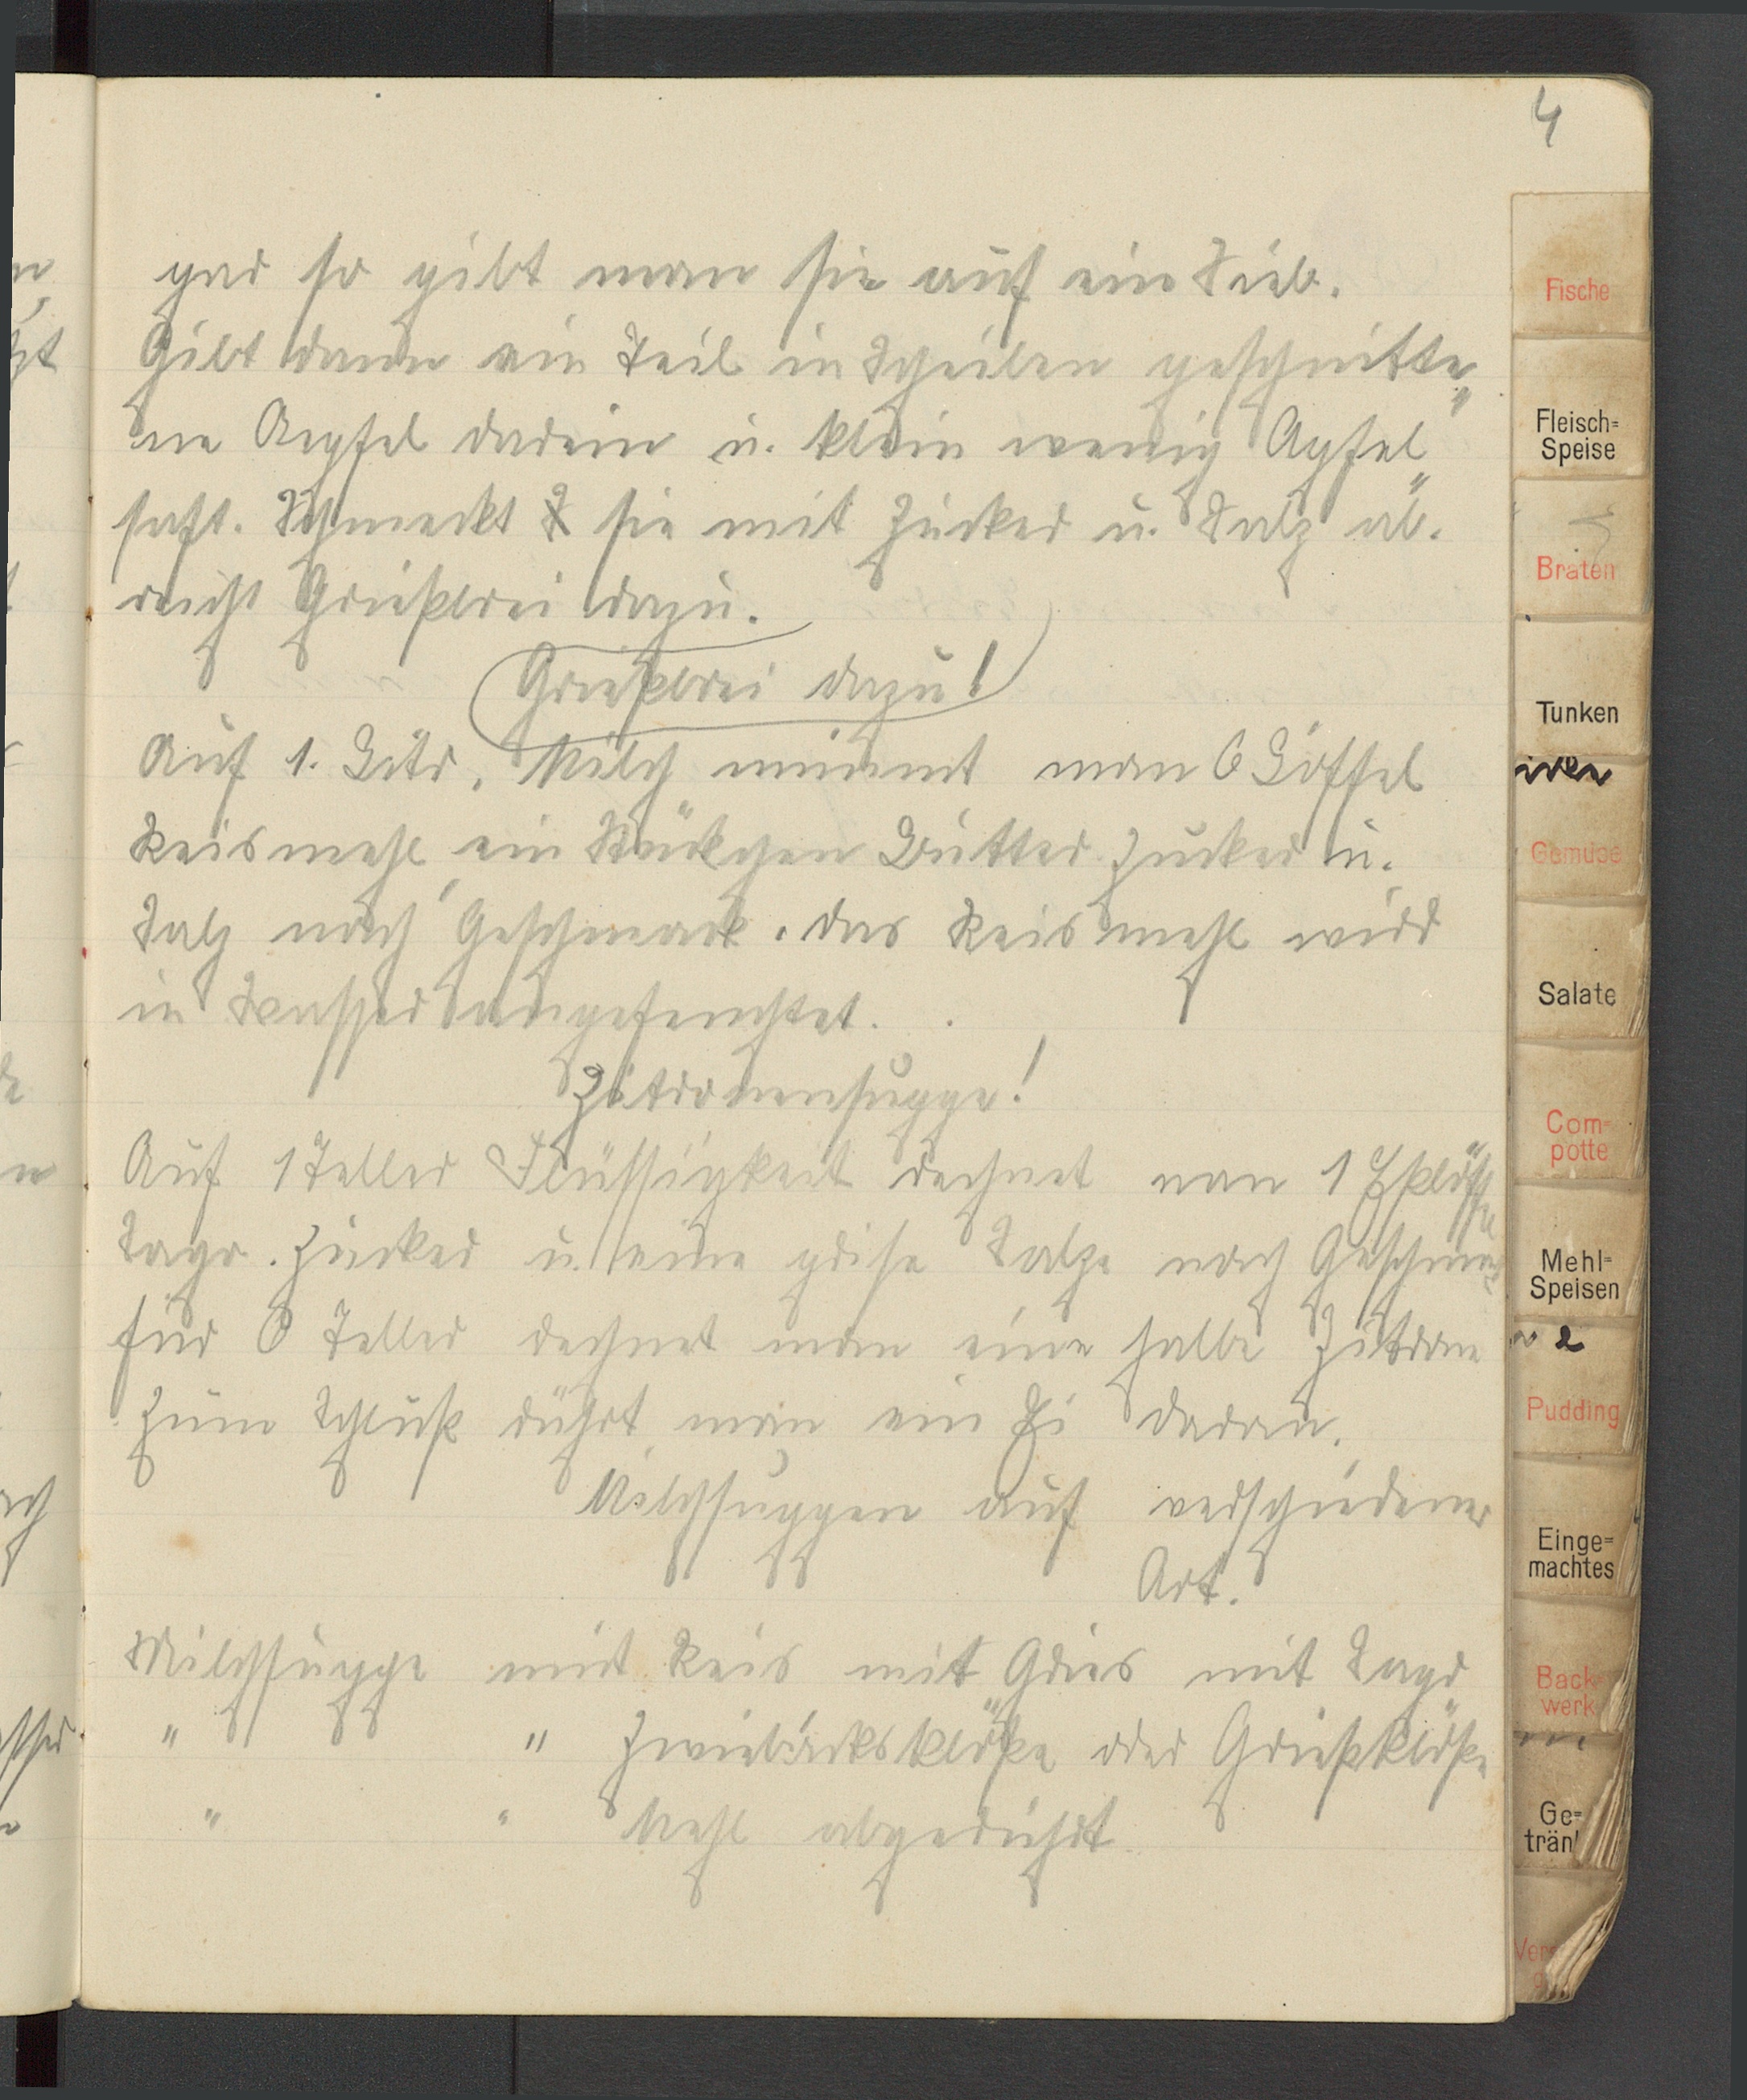 4
gar so gibt man sie auf ein Sieb.
Gibt dann ein Teil in Scheiben geschnitte„
ne Aepfel darein u. klein wenig Apfel„
saft. Schmeckt sie mit Zucker u. Salz ab.
reicht Grießbrei dazu.
Grießbrei dazu!
Auf 1. Litr. Milch nimmt man 6 Löffel
Reismehl, ein Stückchen Butter Zucker u.
Salz nach Geschmack. das Reismehl wird
in Wasser angefeuchtet.
Zitronensuppe!
Auf 1 Teller Flüssigkeit rechnet man 1 Eßlöffel
Sago. Zucker u. eine prise Salze nach Geschmack
für 6 Teller rechnet man eine halbe Zitrone
Zum Schluß rührt man ein Ei daran.
Milchsuppen auf verschiedener
Art.
Milchsuppe mit Reis mit Gries mit Sago
" " Zwiebacksklöße oder Grießklöße
" " Mehl abgerührt
Fische
Fleisch=
Speise
Braten
Tunken
Gemüse
Salate
Com=
potte
Mehl=
Speisen
2
Pudding
Einge=
machtes
Back
werk
Ge=
tränk
Ver